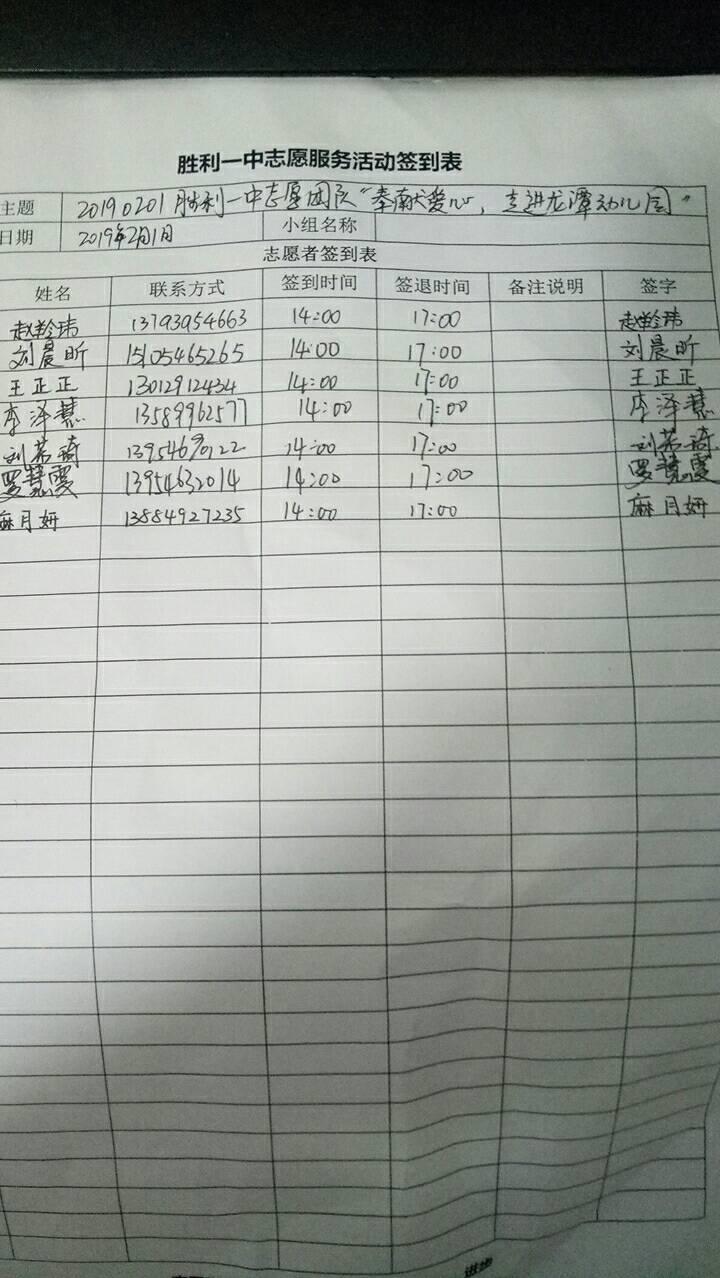 胜利一中志愿服务活动签到表
主题 20190201胜利一中志愿团队“奉献爱心，走进龙潭幼儿园”
日期 2019年2月1日 小组名称
志愿者签到表
姓名 联系方式 签到时间 签退时间 备注说明 签字
赵龄玮 13793954663 14:00 17:00 赵龄玮
刘晨昕 15105465265 14:00 17:00 刘晨昕
王正正 13012912434 14:00 17:00 王正正
李泽慧 13589962577 14:00 17:00 李泽慧
刘若琦 13954690122 14:00 17:00 刘若琦
罗慧雯 13954632014 14:00 17:00 罗慧雯
麻月妍 13884927235 14:00 17:00 麻月妍
进步